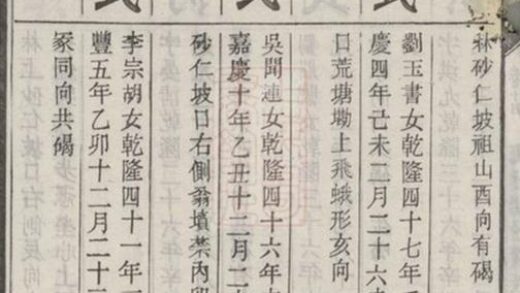 林砂仁坡祖山酉向有碣
劉玉書女乾隆四十七年
慶四年己未二月二十六
口荒塘墈上飛蛾形亥向
吳聞連女乾隆四十六年
嘉慶十年乙丑十二月二
砂仁坡口右側翁墳禁內
李宗胡女乾隆四十一年
豐五年乙卯十二月二十
冢同向共碣